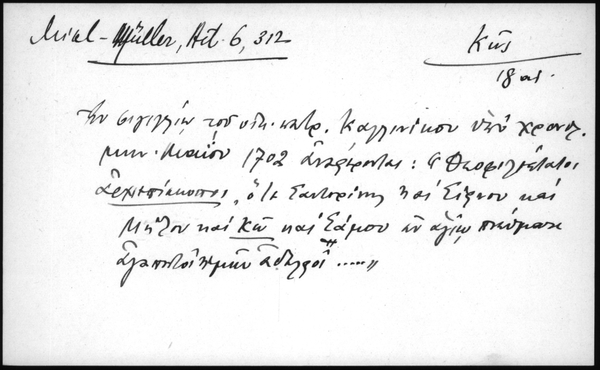 Mikl-Müller, Act. 6, 312
Κῶς
18 αἰ.
Ἐν σιγιλλίῳ τοῦ οἰκ. πατρ. Καλλινίκου ὑπό χρονολ.
μην. Μαΐου 1702 ἀναφέρονται: "οἱ Θεοφιλέστατοι
ἀρχιεπίσκοποι, ὅ τε Σαντορίνης καί Σίφνου καί
Μήλου καί Κῶ καί Σάμου ἐν ἁγίῳ πνεύματι
ἀγαπητοί ἡμῶν ἀδελφοί ....."